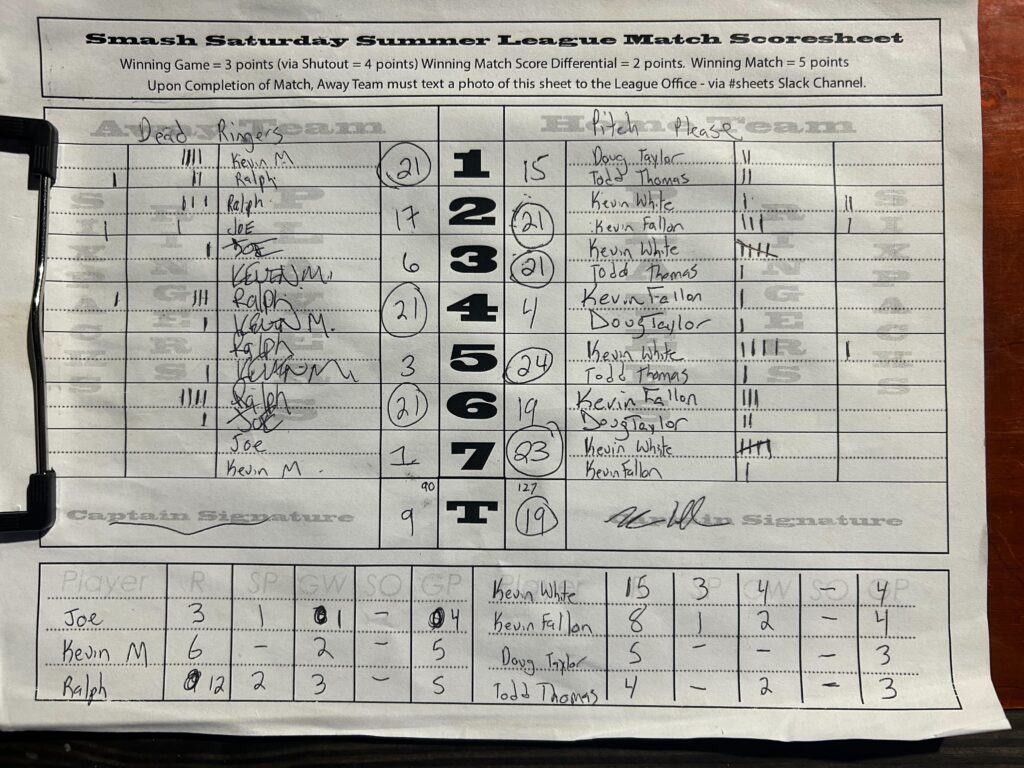 Smash Saturday Summer League Match Scoresheet
Winning Game = 3 points (via Shutout = 4 points) Winning Match Score Differential = 2 points. Winning Match = 5 points
Upon Completion of Match, Away Team must text a photo of this sheet to the League Office - via #sheets Slack Channel.
Away Team Home Team
Dead Ringers Pitch Please
SIXPACKS RINGERS PLAYERS PLAYERS RINGERS SIXPACKS
Kevin M 21 1 15 Doug Taylor
Ralph Todd Thomas
Ralph 17 2 21 Kevin White
JOE Kevin Fallon
JOE 6 3 21 Kevin White
KEVIN M. Todd Thomas
Ralph 21 4 4 Kevin Fallon
KEVIN M. Doug Taylor
Ralph 3 5 24 Kevin White
KEVIN M. Todd Thomas
Ralph 21 6 19 Kevin Fallon
JOE Doug Taylor
Joe 1 7 23 Kevin White
Kevin M. Kevin Fallon
90 127
Captain Signature 9 T 19 Captain Signature
Player R SP GW SO GP
Joe 3 1 1 - 4
Kevin M 6 - 2 - 5
Ralph 12 2 3 - 5
Player R SP GW SO GP
Kevin White 15 3 4 - 4
Kevin Fallon 8 1 2 - 4
Doug Taylor 5 - - - 3
Todd Thomas 4 - 2 - 3